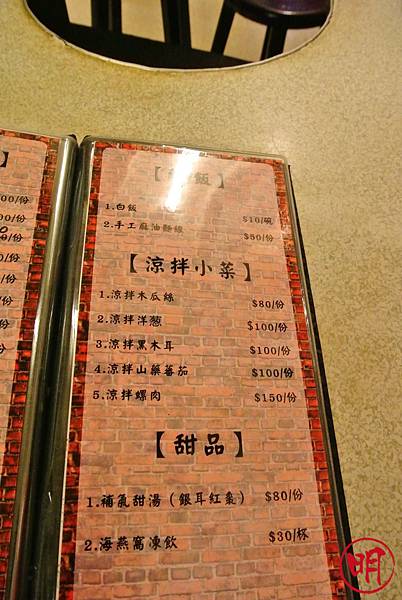 】
00/份
00/份
00/份
/份
/份
/份
份
【 飯】
1.白飯 $10/碗
2.手工麻油麵線 $50/份
【涼拌小菜】
1.涼拌木瓜絲 $80/份
2.涼拌洋葱 $100/份
3.涼拌黑木耳 $100/份
4.涼拌山藥蕃茄 $100/份
5.涼拌螺肉 $150/份
【甜品】
1.補氣甜湯（銀耳紅棗） $80/份
2.海燕窩凍飲 $30/杯
明